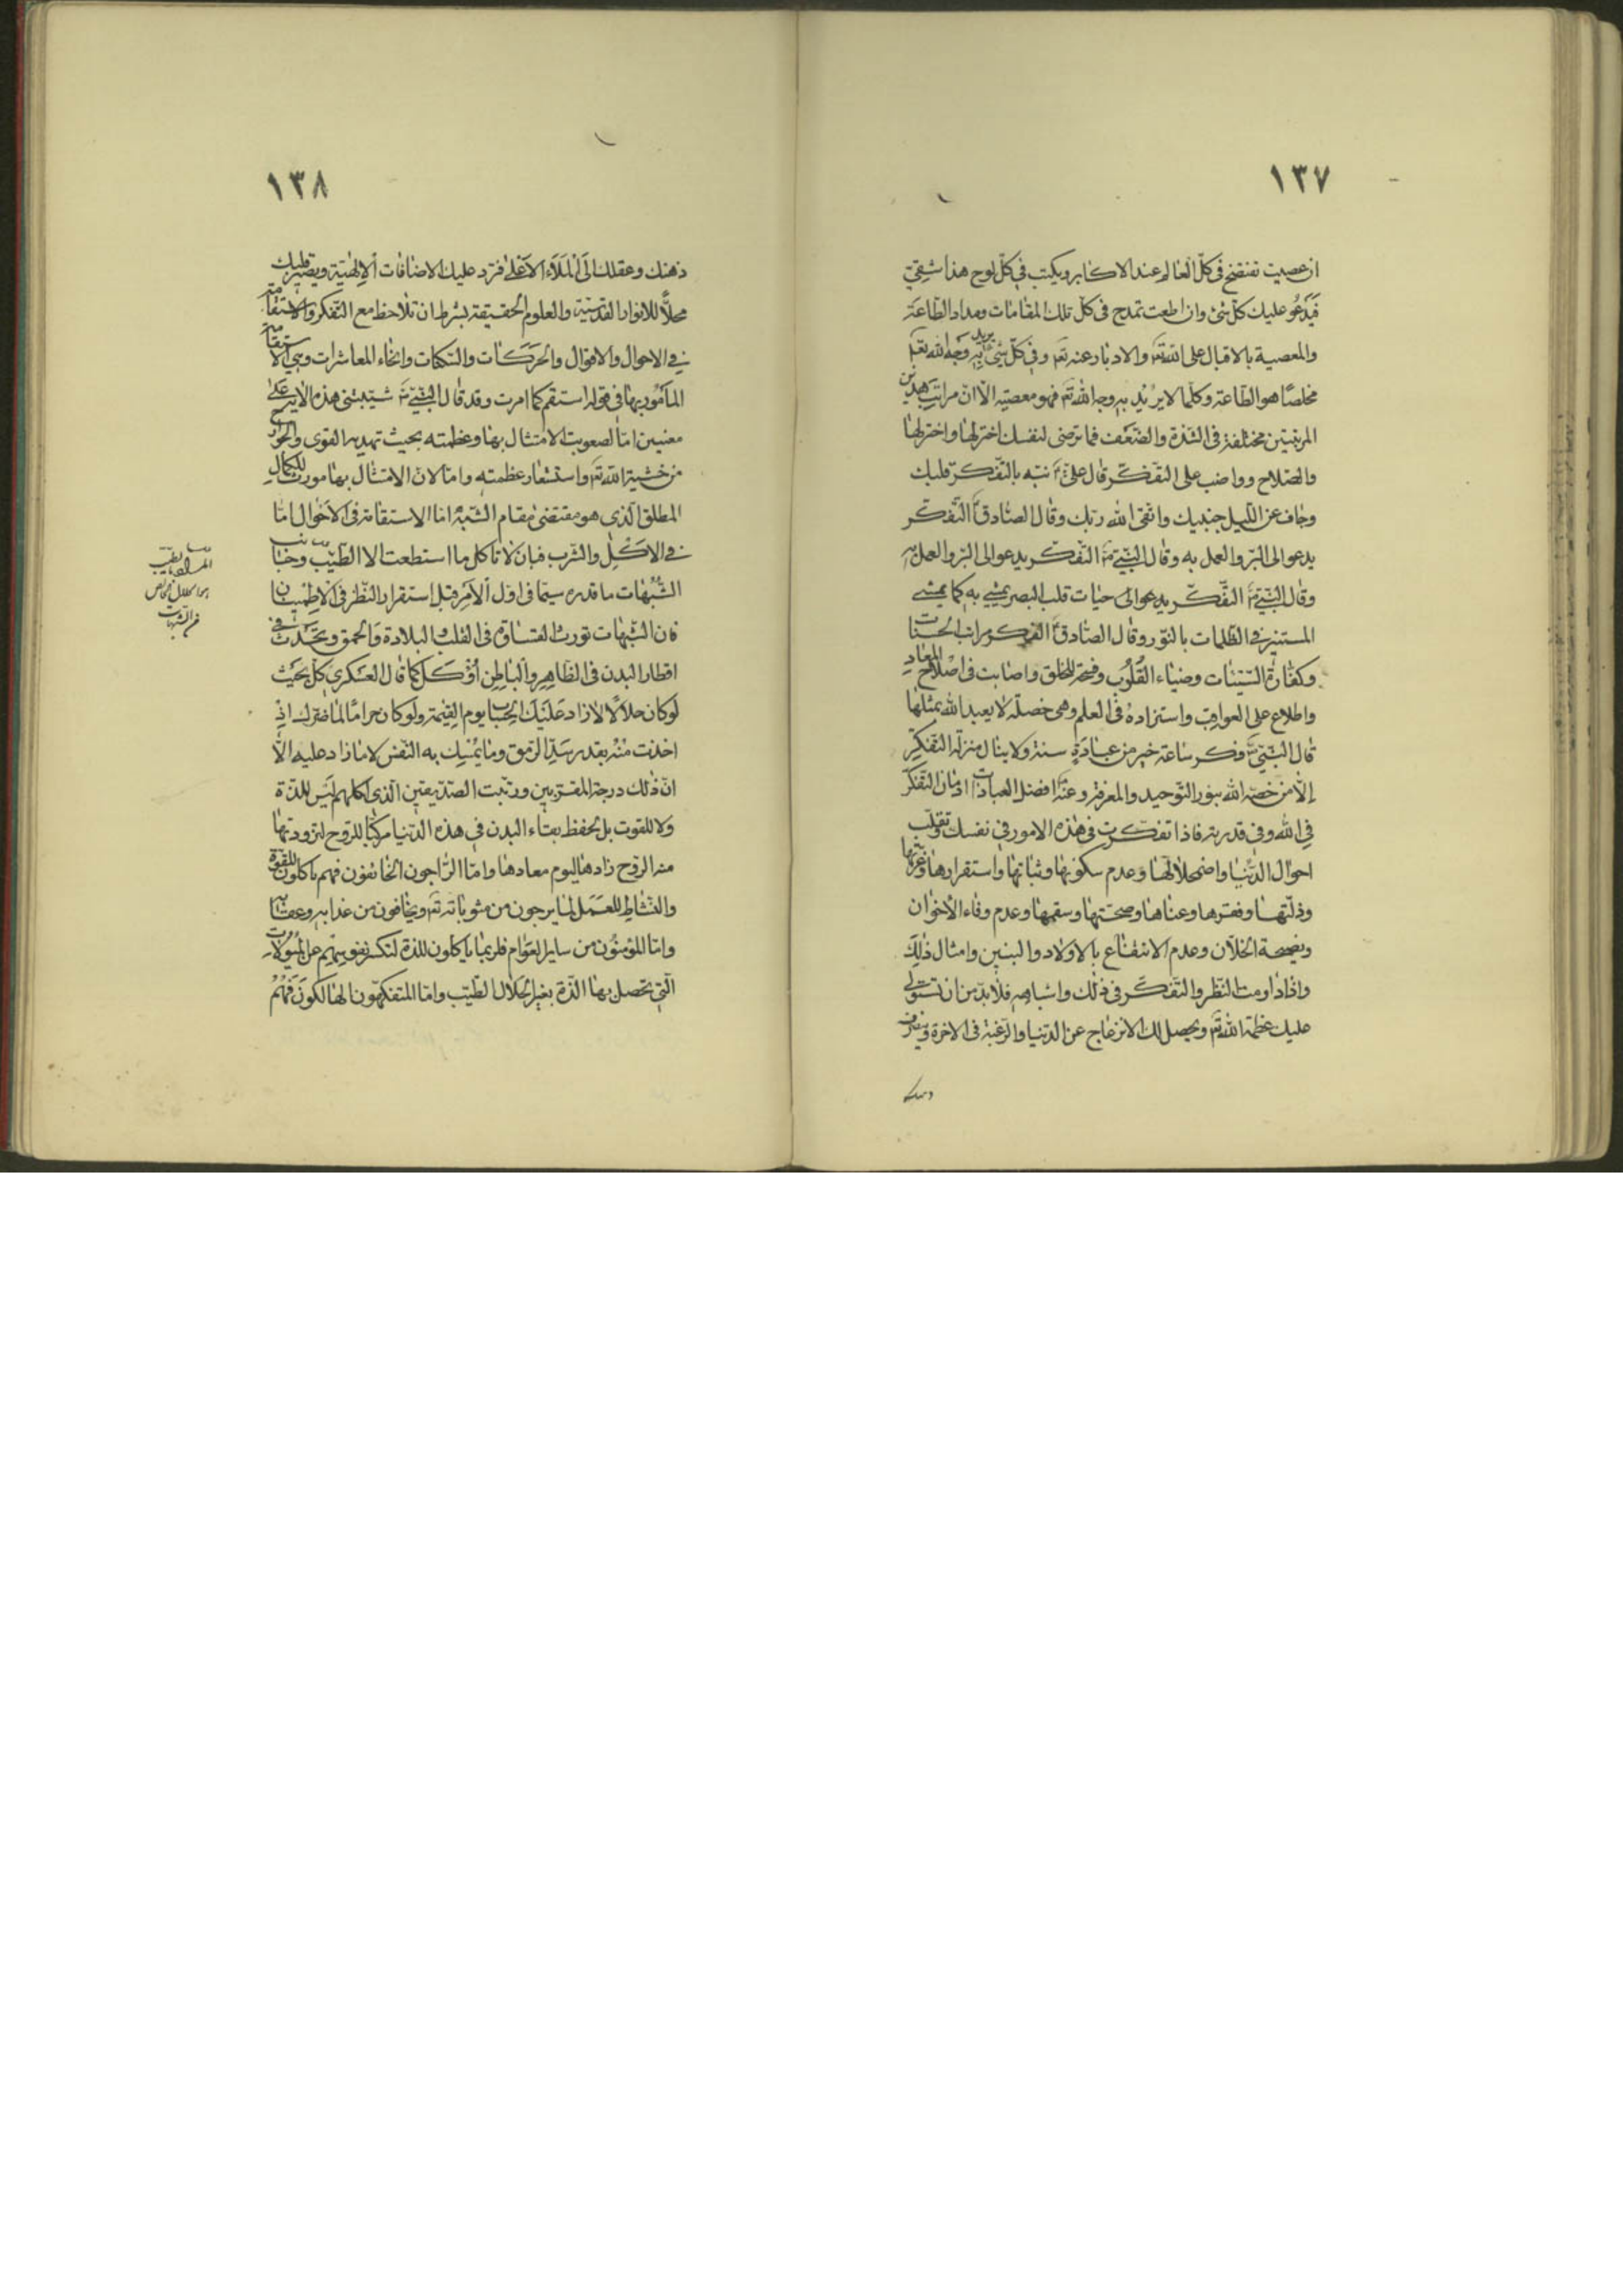 ١٣٧
ان عصيت تفتضح في كل العالم عند الاكابر ويكتب في كل لوح هذا شقي
فيدعو عليك كل شئ وان اطعت تمدح في كل تلك المقامات ومدار الطاعة
والمعصية بالاقبال على الله تعم والادبار عنه تعم وفي كل شئ يريد به وجه الله تعم
مخلصا هو الطاعة وكلما لا يريد به وجه الله تعم فهو معصية الا ان مراتب هذين
المرتبتين مختلفة في الشدة والضعف فما ترضى لنفسك اخترلها واخترلها
والصلاح وواضب على التفكر قال علي ع نبه بالتفكر قلبك
وجاف عن الليل جنبيك واتقى الله ربك وقال الصادق ع التفكر
يدعو الى البر والعمل به وقال النبي ص التفكر يدعو الى البر والعمل به
وقال النبي ص التفكر يدعوالى حيات قلب البصر يمشي به كما يمشي
المستنير في الظلمات بالنور وقال الصادق ع الفكر مرات الحسنات
وكفارة السيئات وضياء القلوب وفسحة للخلق واصابت في اصلاح المعاد
واطلاع على العواقب واستزادة في العلم وهي خصلة لا يعبد الله بمثلها
قال النبي ص فكر ساعة خير من عبادة سنة ولا ينال منزلة التفكر
إلا من خصه الله بنور التوحيد والمعرفة وعنه ع افضل العبادات ادمان التفكر
في الله وفي قدرته فاذا تفكرت في هذه الامور في نفسك وتقلب
احوال الدنيا واضمحلالها وعدم سكونها وثباتها واستقرارها وعزتها
وذلتها وفقرها وغناها وصحتها وسقمها وعدم وفاء الأخوان
ونصيحة الخلان وعدم الانتفاع بالاولاد والبنين وامثال ذلك
واذا داومت النظر والتفكر في ذلك واشباهه فلا بد من ان تستولى
عليك عظمة الله تعم ويحصل لك الانزعاج عن الدنيا والرغبة في الاخرة
١٣٨
ذهنك وعقلك الى الملاء الاعلى فترد عليك الاضافات الالهية ويصير قلبك
محلا للانوار القدسية والعلوم الحقيقة بشرط ان تلاحظ مع التفكر والاستقامة
في الاحوال والاقوال والحركات والسكنات وانحاء المعاشرات وهي الاستقامة
المأمور بها في قوله استقم كما امرت وقد قال النبي ص شيبتني هذه الاية على
معنيين اما لصعوبت الامتثال بها وعظمته بحيث تهد به القوى والجوارح
من خشية الله تعم واستشعار عظمته واما لان الامتثال بها مورث للكمال
المطلق الذي هو مقتضى مقام الشيبة اما الاستقامة في الاحوال اما
في الاكل والشرب فبان لا تأكل ما استطعت الا الطيب وجانب
الشبهات ما قدرت سيما في اول الأمر قبل استقرار النظر في الاطمينان
فان الشبهات تورث القساوة في القلب والبلادة والحمق وتحدث في
اقطار البدن في الظاهر والباطن كل كما قال العسكري كل بحيث
لو كان حلالا لازاد عليك الحساب يوم القيمة ولو كان حراما لما ضرك اذ
اخذت منه بقدر سد الرمق وما يمسك به النفس لا ما زاد عليه الا
ان ذلك درجة المقربين ورتبت الصديقين الذي اكلهم ليس للذة
ولا للقوت بل لحفظ بقاء البدن في هذه الدنيا مركبا للروح لتزود
منه الروح زادها ليوم معادها واما الراجون الخائفون فهم ياكلون للقوة
والنشاط للعمل لما يرجون من مثوباته تعم ويخافون من عذابه وعقابه
واما المؤمنون من ساير العوام فلربما ياكلون للذة لتكسر نفوسهم عن الميولات
التي تحصل بها الذة بغير الحلال الطيب واما المتفكهون الهالكون فهم